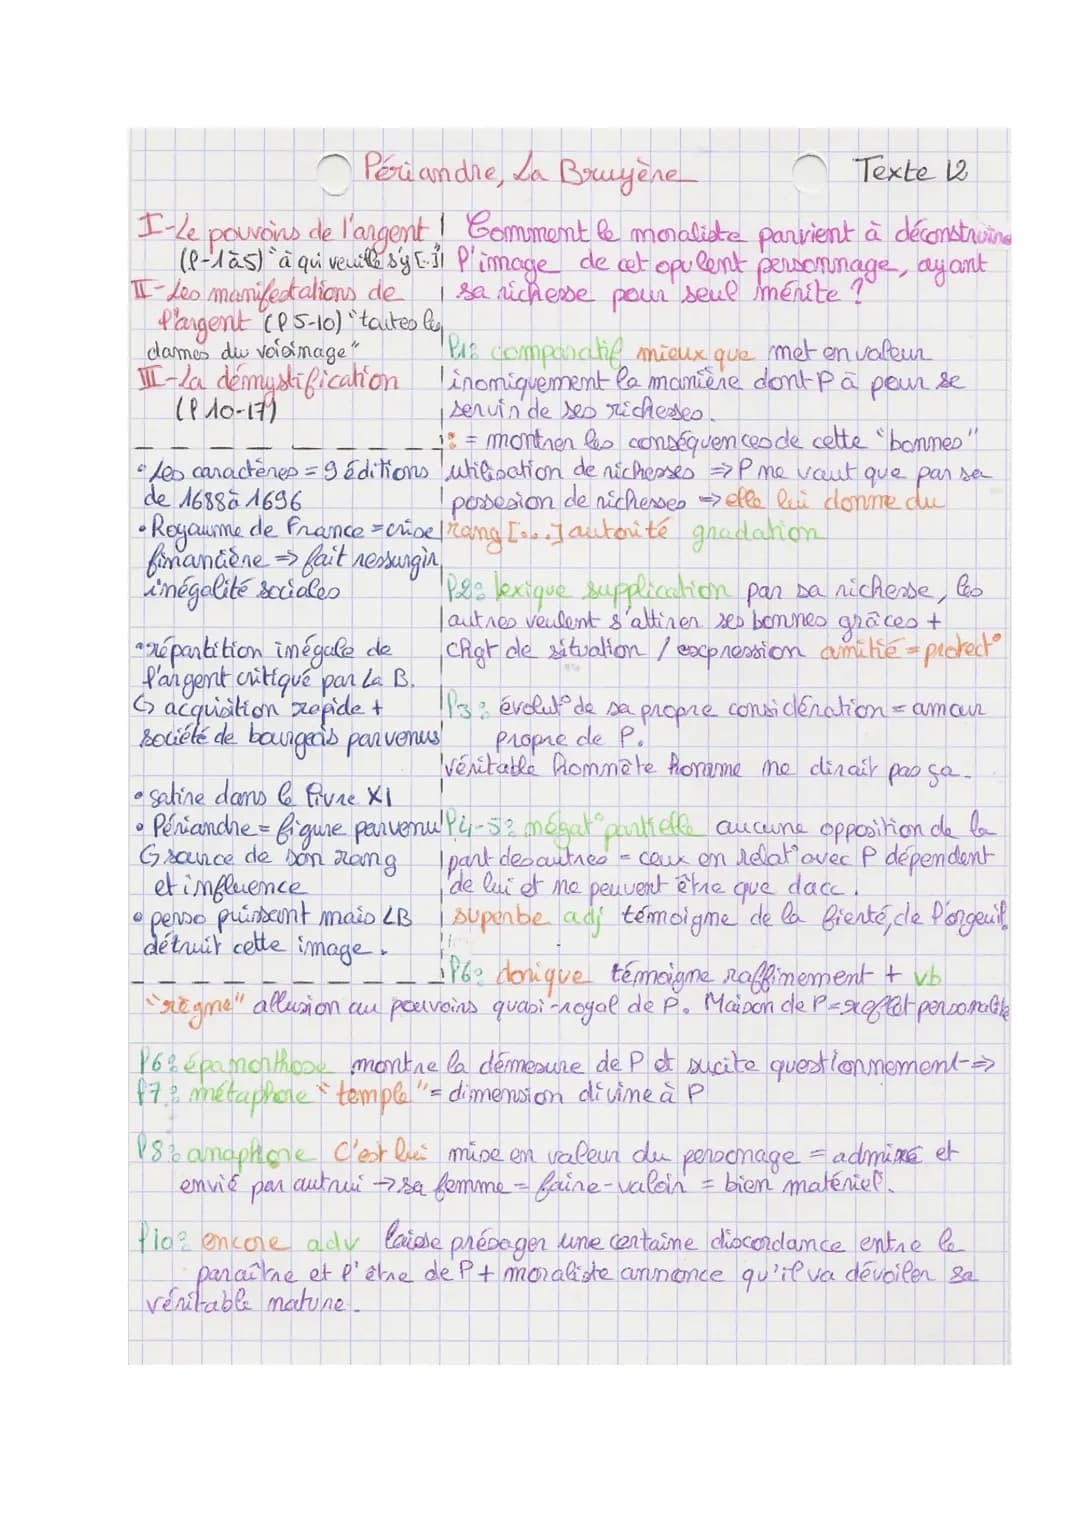 Périandre, La Bruyère
Texte 12
I-Le pouvoirs de l'argent
(l-1à5) "à qui veuille s'y [...]
II-Les manifestations de
l'argent (l 5-10) "toutes les
dames du voisinage"
III-La démystification
(l 10-17)
• Les caractères = 9 éditions
de 1688 à 1696
• Royaume de France = crise
financière => fait ressurgir
inégalité sociales
• répartition inégale de
l'argent critiqué par La B.
↳ acquisition rapide +
société de bourgeois parvenus
• satire dans le livre XI
• Périandre = figure parvenu
↳ source de son rang
et influence
• perso puissant mais LB
détruit cette image.
Comment le moraliste parvient à déconstruire
l'image de cet opulent personnage, ayant
sa richesse pour seul mérite ?
l1: comparatif mieux que met en valeur
inomiquement la manière dont P à peur se
servir de ses richesses.
: = montrer les conséquences de cette "bonnes"
utilisation de richesses => P ne vaut que par sa
possesion de richesses => elle lui donne du
rang [...] autorité gradation
l2: lexique supplication par sa richesse, les
autres veulent s'attirer ses bonnes grâces +
chgt de situation / expression amitié = protect°
l3: évolut° de sa propre considération = amour
propre de P.
véritable honnête homme ne dirait pas ça.
l4-5: négat° partielle aucune opposition de la
part des autres = ceux en relat° avec P dépendent
de lui et ne peuvent être que dacc.
superbe adj témoigne de la fierté, de l'orgeuil
l6: dorique témoigne raffinement + vb
"règne" allusion au pouvoirs quasi-royal de P. Maison de P = reflet personnalité
l6: épanorthose montre la démesure de P et sucite questionnement =>
l7: métaphore "temple" = dimension divine à P
l8: anaphore C'est lui mise en valeur du personage = admiré et
envié par autrui → sa femme = faire-valoir = bien matériel.
l10: encore adv laisse présager une certaine discordance entre le
paraître et l'être de P + moraliste annonce qu'il va dévoiler sa
véritable nature.